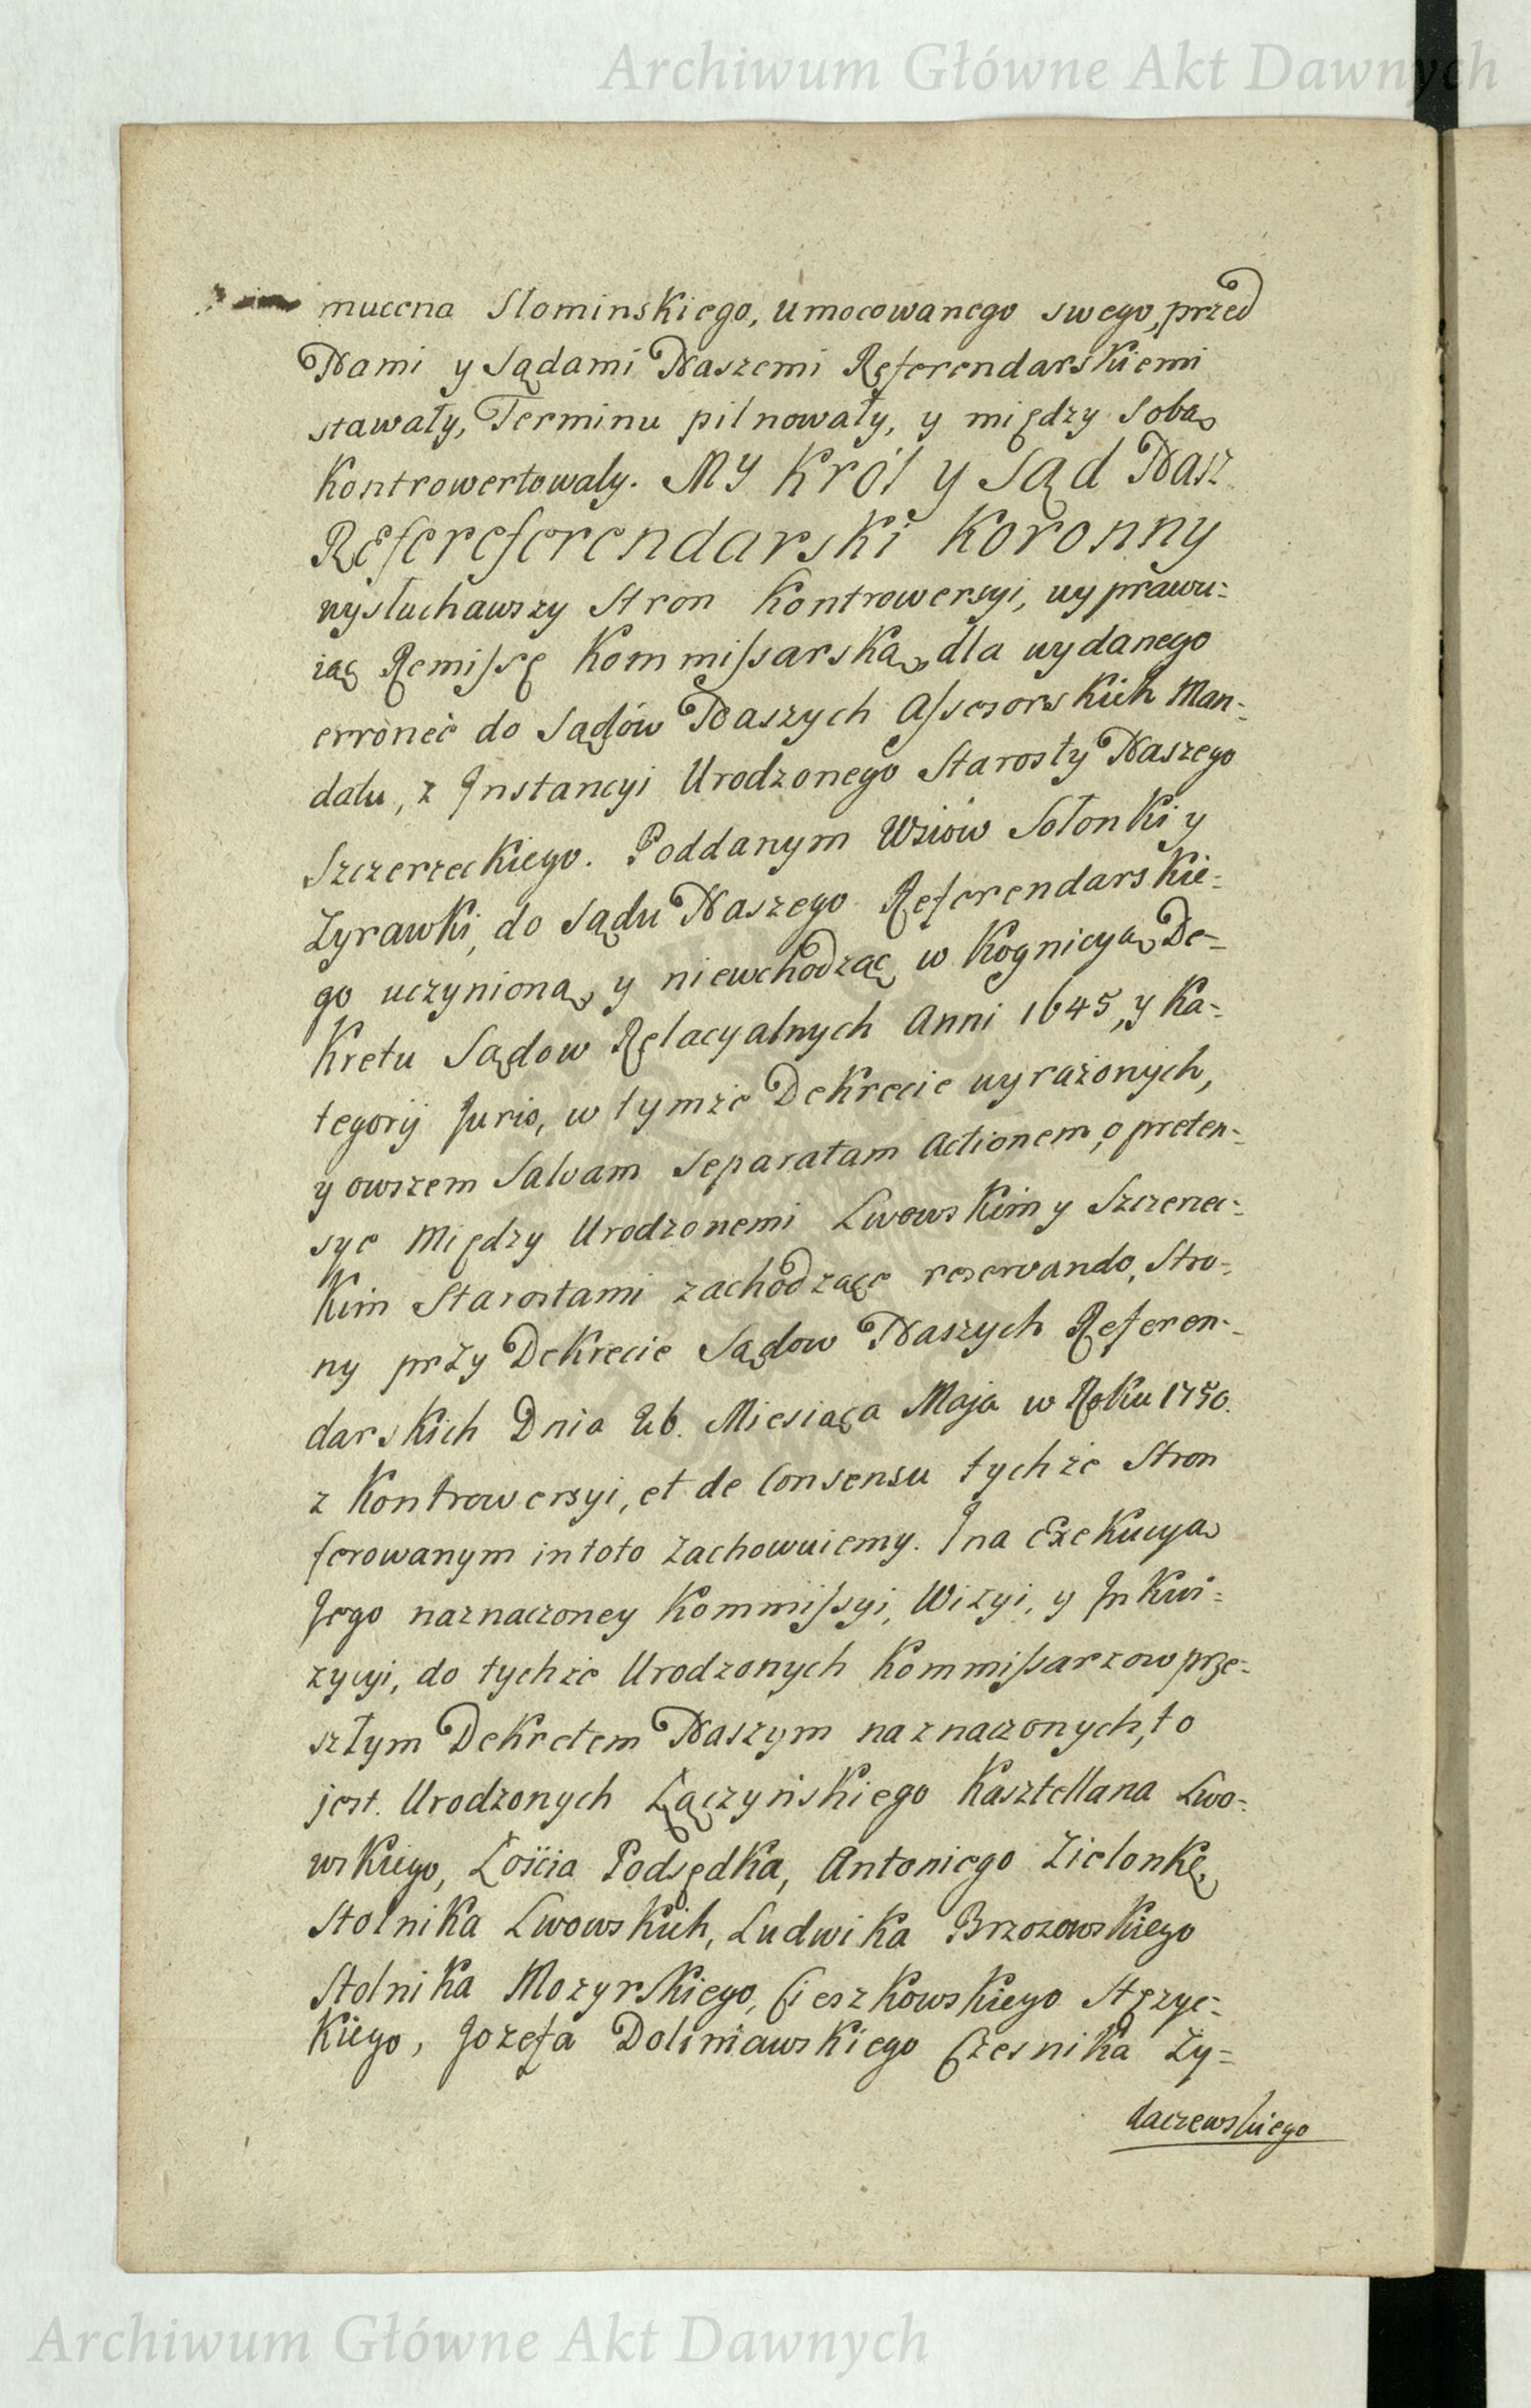 Archiwum Główne Akt Dawnych
mucena Slominskiego, umocowanego swego, przed
Nami y Sądami Naszemi Referendarskiemi
stawały, Terminu pilnowały, y między sobą
Kontrowertowaly. My Król y Sąd Nasz
Refereferendarski Koronny
wysłuchawszy Stron Kontrowersyi, wyprawu=
iąc Remissę Kommissarską, dla wydanego
erronee do Sądów Naszych Assesorskich Man=
datu, z Instancyi Urodzonego Starosty Naszego
Szczerzeckiego. Poddanym Wsiów Sołonki y
Zyrawki, do Sądu Naszego Referendarskie=
go uczynioną, y niewchodząc w Kognicyą De=
kretu Sądow Relacyalnych Anni 1645, y Ka=
tegorij Juris, w tymże Dekrecie wyrażonych,
y owszem Salvam Separatam Actionem, o preten=
sye Między Urodzonemi Lwowskim y Szczerzec=
kim Starostami zachodzące reservando, Stro=
ny przy Dekrecie Sądow Naszych Referen=
darskich Dnia 26. Miesiąca Maja w Roku 1750.
z Kontrowersyi, et de Consensu tychże Stron
ferowanym in toto zachowuiemy. I na Exekucyą
Jego naznaczoney Kommissyi, Wizyi, y Inkwi=
zycyi, do tychże Urodzonych Kommissarzow prze=
szłym Dekretem Naszym naznaczonych, to
jest. Urodzonych Łączyńskiego Kasztellana Lwo=
wskiego, Łościa Podsędka, Antoniego Zielonkę,
Stolnika Lwowskich, Ludwika Brzozowskiego
Stolnika Mozyrskiego, Cieszkowskiego Stężyc=
kiego, Jozefa Doliniawskiego Czesnika Zy=
daczewskiego
Archiwum Główne Akt Dawnych